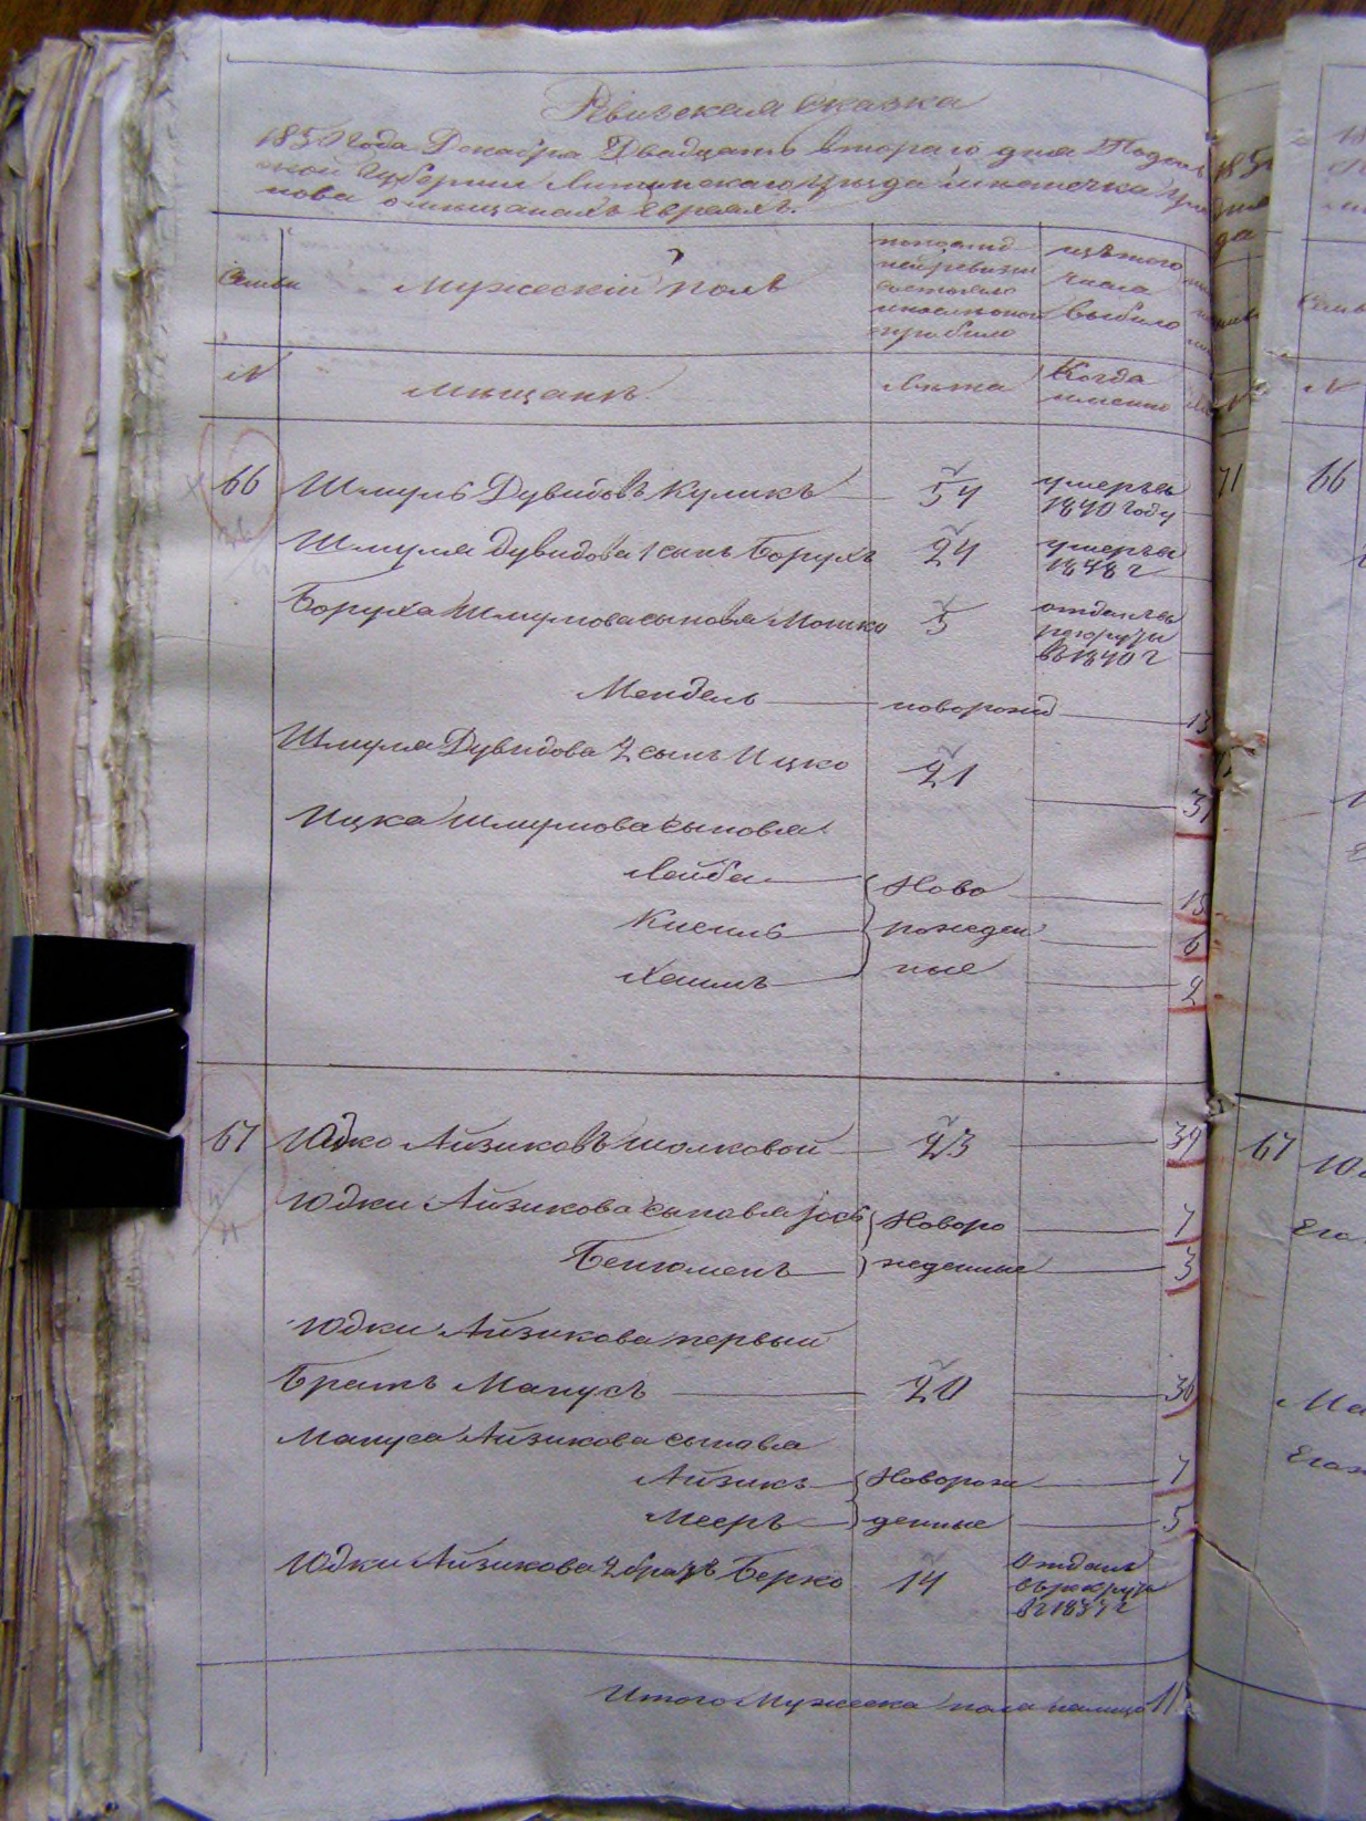 Ревизская сказка
1850 года Декабря Двадцать второго дня Подоль
ской Губернии Литинского уезда местечка Ула
нова о мещанах евреях.
Семьи
Мужеский пол
По последней ревизии состояло и после оной прибыло
Из того числа выбыло
№
Мещане
Лета
Когда именно
66 Шмуль Дувидовъ Куликъ 54 умеръ въ 1840 году
Шмуля Дувидова 1 сынъ Борухъ 24 умеръ въ 1838 г
Боруха Шмулова сыновья Мошко 5 отданъ въ рекруты въ 1840 г
Мендель новорожд 13
Шмуля Дувидова 2 сынъ Ицко 21 37
Ицка Шмулова сыновья
Лейба Ново 15
Кисиль рожден 6
Хаимъ ные 2
67 Юдко Айзиковъ Шолковой 23 39
Юдки Айзикова сыновья Іось Новоро 7
Бенюменъ жденные 3
Юдки Айзикова первый
Братъ Манусъ 20 36
Мануса Айзикова сыновья
Айзикъ Новорож 7
Мееръ денные 5
Юдки Айзикова 2 братъ Берко 14 Отданъ въ рекруты в 1837 г
Итого Мужеска пола налицо 11
66
67